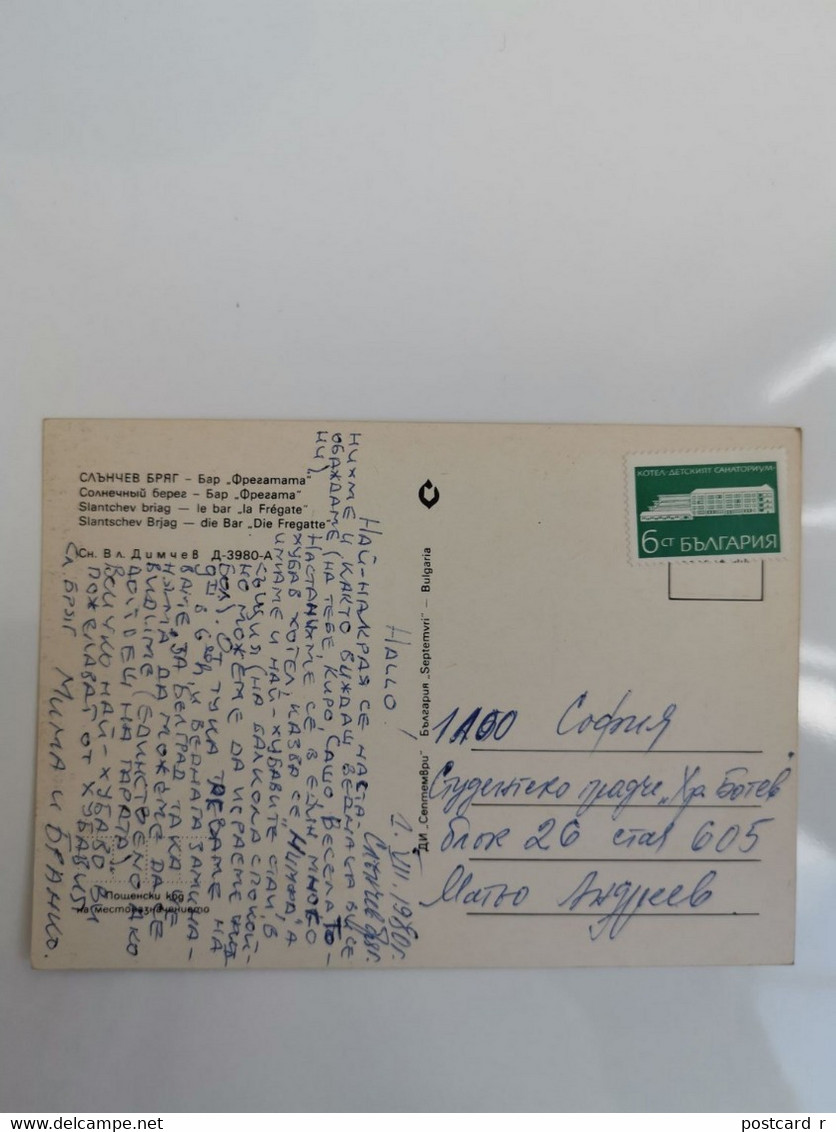 СЛЪНЧЕВ БРЯГ – Бар „Фрегатата“
Солнечный берег – Бар „Фрегата“
Slantchev briag — le bar "la Frégate"
Slantschev Brjag — die Bar „Die Fregatte“
Сн. Вл. Димчев Д-3980-А
КОТЕЛ-ДЕТСКИЯТ САНАТОРИУМ
6СТ БЪЛГАРИЯ
ДИ „Септември“ България "Septemvri" — Bulgaria
2. VIII. 1980г.
Слънчев бряг.
HALLO!
НАЙ-НАКРАЯ СЕ НАСТА-
НИХМЕ И, КАКТО ВИЖДАШ ВЕДНАГА ВИ СЕ
ОБАЖДАМЕ (НА ТЕБЕ, КИРО, САШО, ВЕСЕЛА, ТО-
НИ)
НАСТАНИХМЕ СЕ В ЕДИН МНОГО
ХУБАВ ХОТЕЛ, КАЗВА СЕ А
ИМАМЕ И НАЙ-ХУБАВИТЕ СТАИ, В
СЪЩИЯ (НА БАЛКОНА СПОКОЙ-
НО МОЖЕМЕ ДА ИГРАЕМЕ
БОЛ). ОТ ТУКА НА
В 6 И ВЕДНАГА ЗАМИНА-
ВАМЕ ЗА БЕЛГРАД ТАКА ЧЕ
НЯМА ДА МОЖЕМЕ ДА СЕ
ВИДИМЕ (ЕДИНСТВЕНО АКО
ДОЙДЕШ НА ГАРАТА)
ВСИЧКО НАЙ-ХУБАВО ВИ
ПОЖЕЛАВАТ ОТ ХУБАВИЯ
СЛ. БРЯГ МИМА И БРАНКО.
София
Студентско градче „Хр. Ботев“
блок 26 стая 605
Матьо Андреев
Пощенски код
на местоназначението
delcampe.net
postcard_r